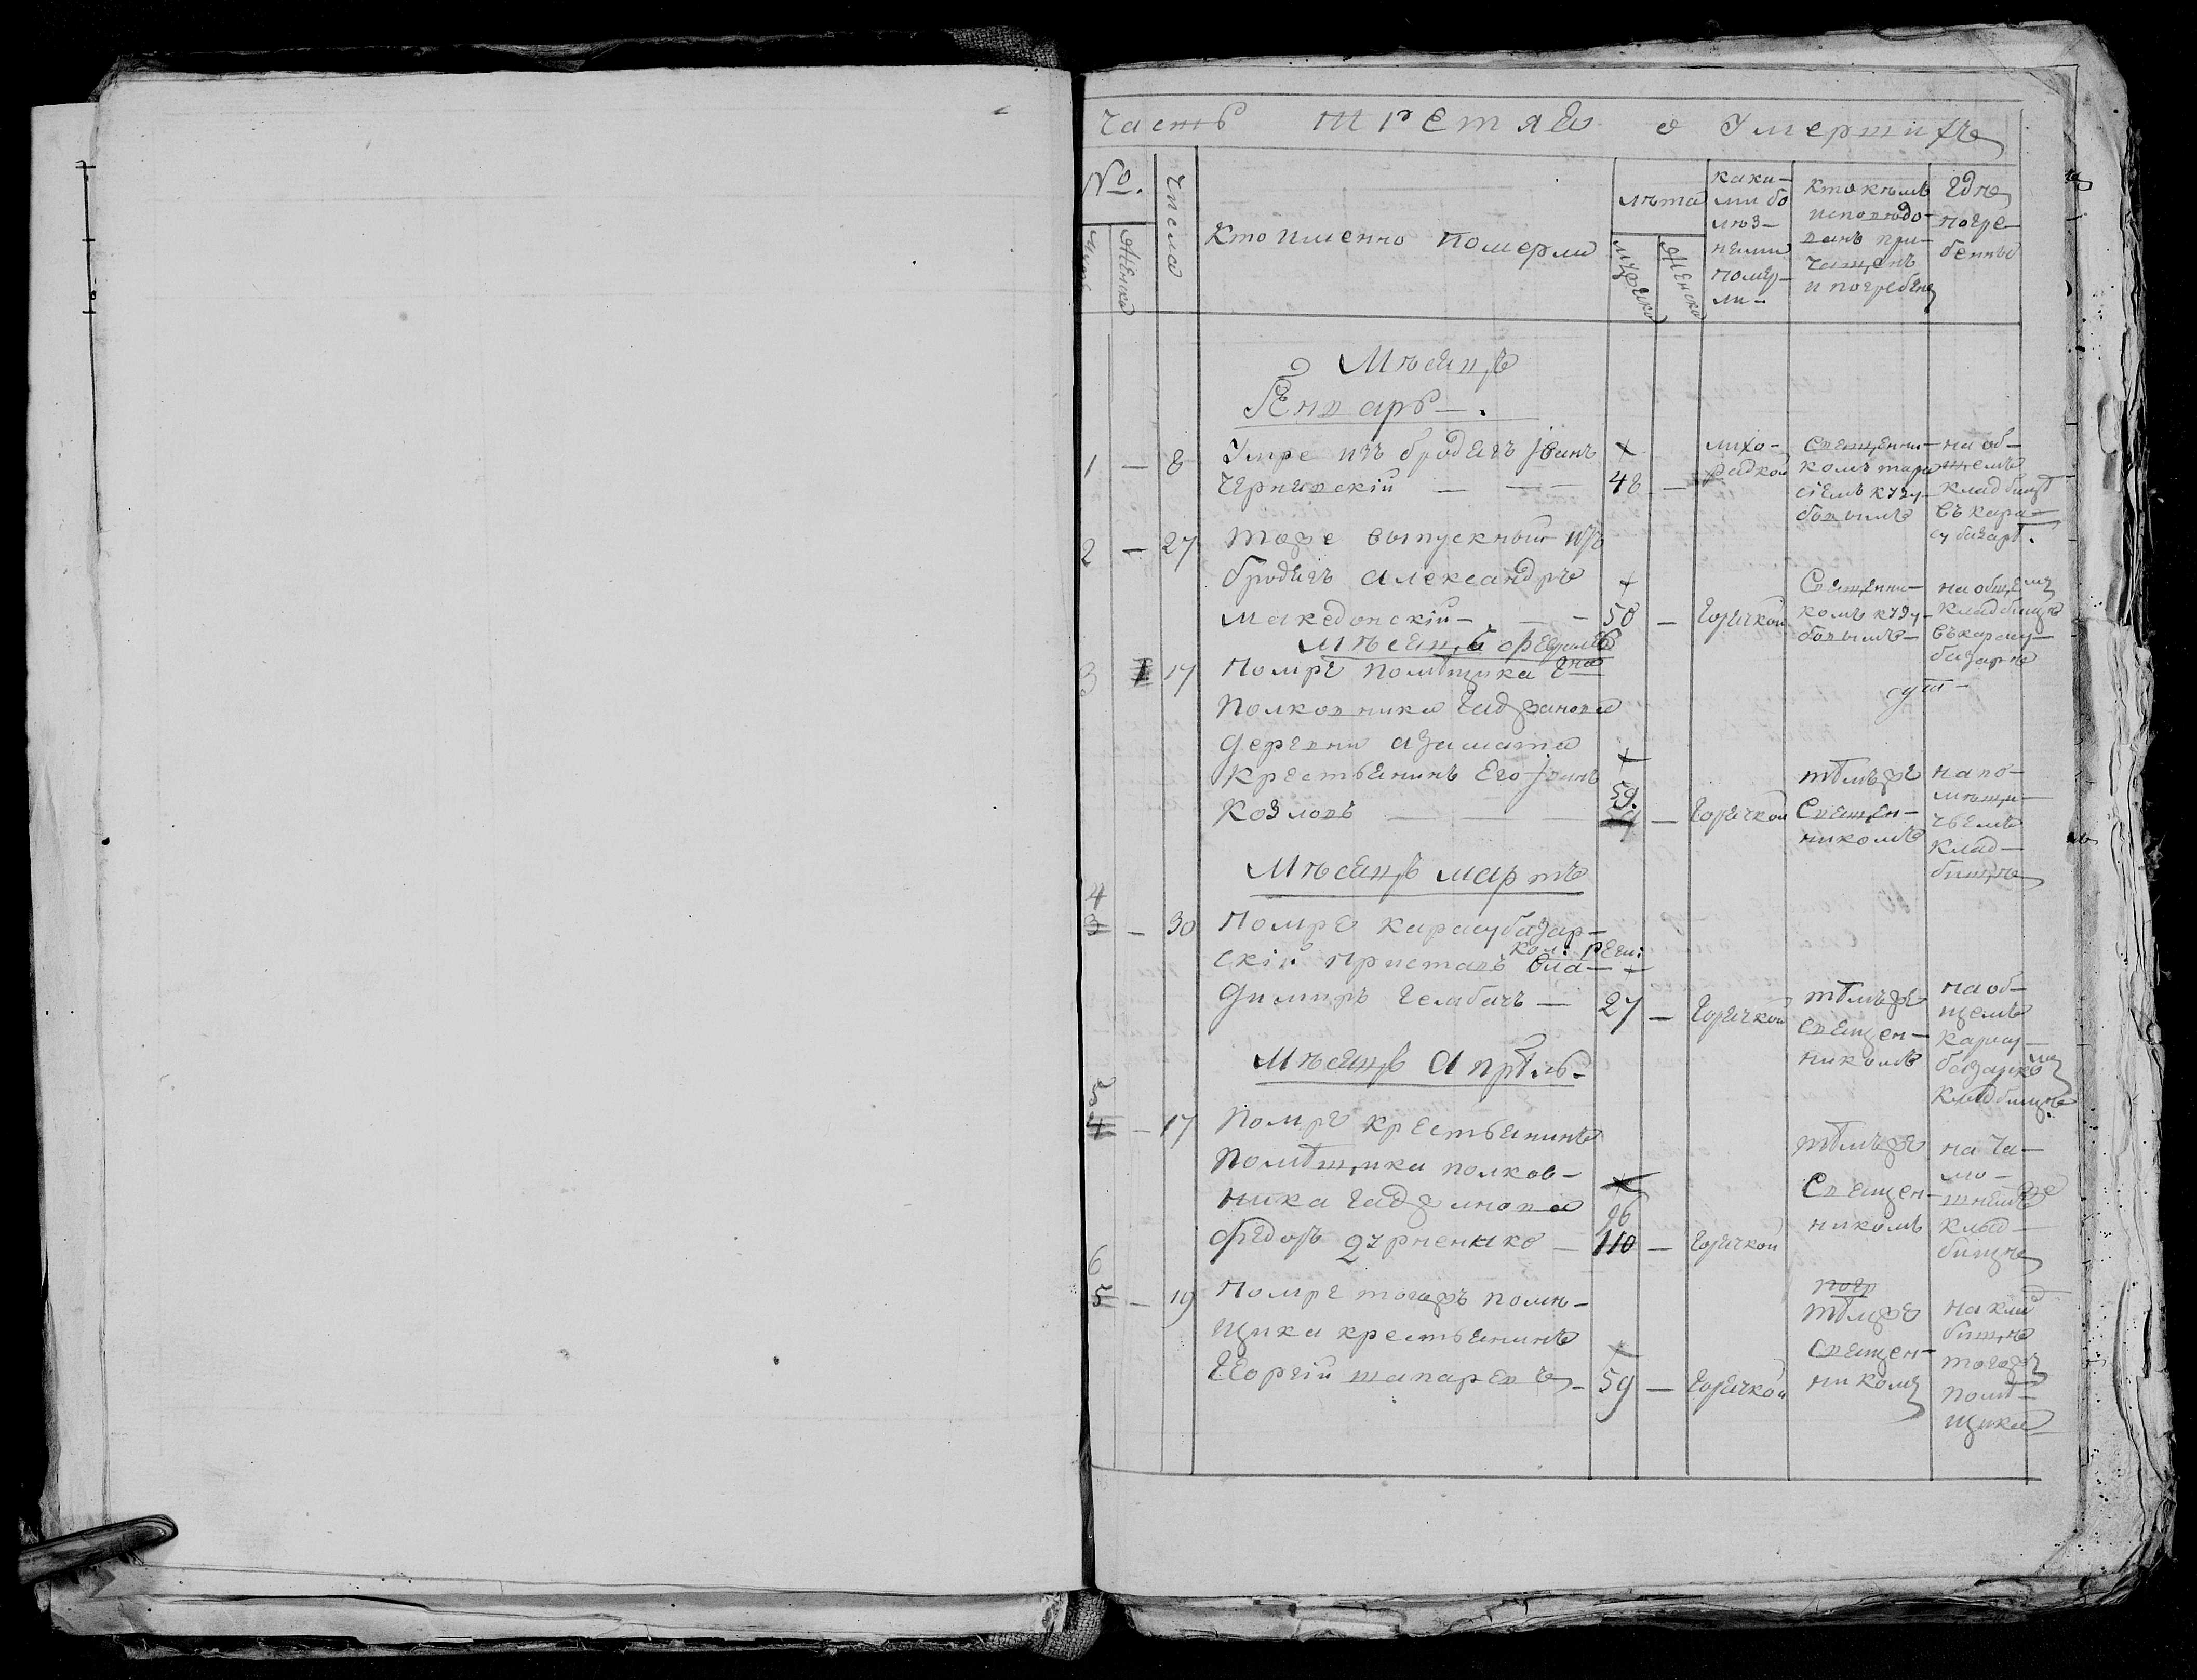 Часть третяя о Умертихъ
№.
мужс
женска
числа
Кто именно померли
лѣта
мужска
женска
каки-
ми бо
лѣз-
нями
помер-
ли-
кто кѣмъ
исповѣдо-
ванъ при-
чащенъ
и погребенъ
гдѣ
погре-
бенны
Мѣсяцъ
Генварь.
1 — 8 Умре изъ бродягъ Іванъ
Чернявскій — 48 —
лихо-
радкой
Священни-
комъ тара
сіемъ кузу-
бовымъ
на об-
щемъ
кладбищѣ
въ кара-
субазарѣ.
2 — 27 тоже выпускный изъ
бродягъ александръ
македонскій — 58 — горячкой
Священни-
комъ кузу-
бовымъ
на общемъ
кладбищѣ
въ карасу-
базарѣ
Мѣсяцъ февраль
3 17 Помре помѣщика гна
Полковника Гаджанова
Деревни азамата
крестьянинъ его Іоанъ
Козловъ — 59. — горячкой
тѣмъже
Священ-
никомъ
на по-
мѣщи-
чьемъ
клад-
бищѣ
Мѣсяцъ мартъ
4 — 30 Помре карасубазар-
скій приставъ кол: реги: Вла-
димиръ Челабачъ — 27 — горячкой
тѣмъже
священ-
никомъ
на об-
щемъ
карасу-
базарскомъ
кладбищѣ
Мѣсяцъ Апрѣль.
4 — 17 Помре крестьянинъ
Помѣщика полков-
ника Гаджанова
Федоръ
96
110 — горячкой
тѣмъже
Священ-
никомъ
на
клад-
бищѣ
6
5 — 19 Помре тогожъ помѣ-
щика крестьянинъ
Георгій шапаревъ — 59 — горячкой
погр
тѣмже
священ-
никомъ
на клад
бищѣ
тогожъ
помѣ-
щика